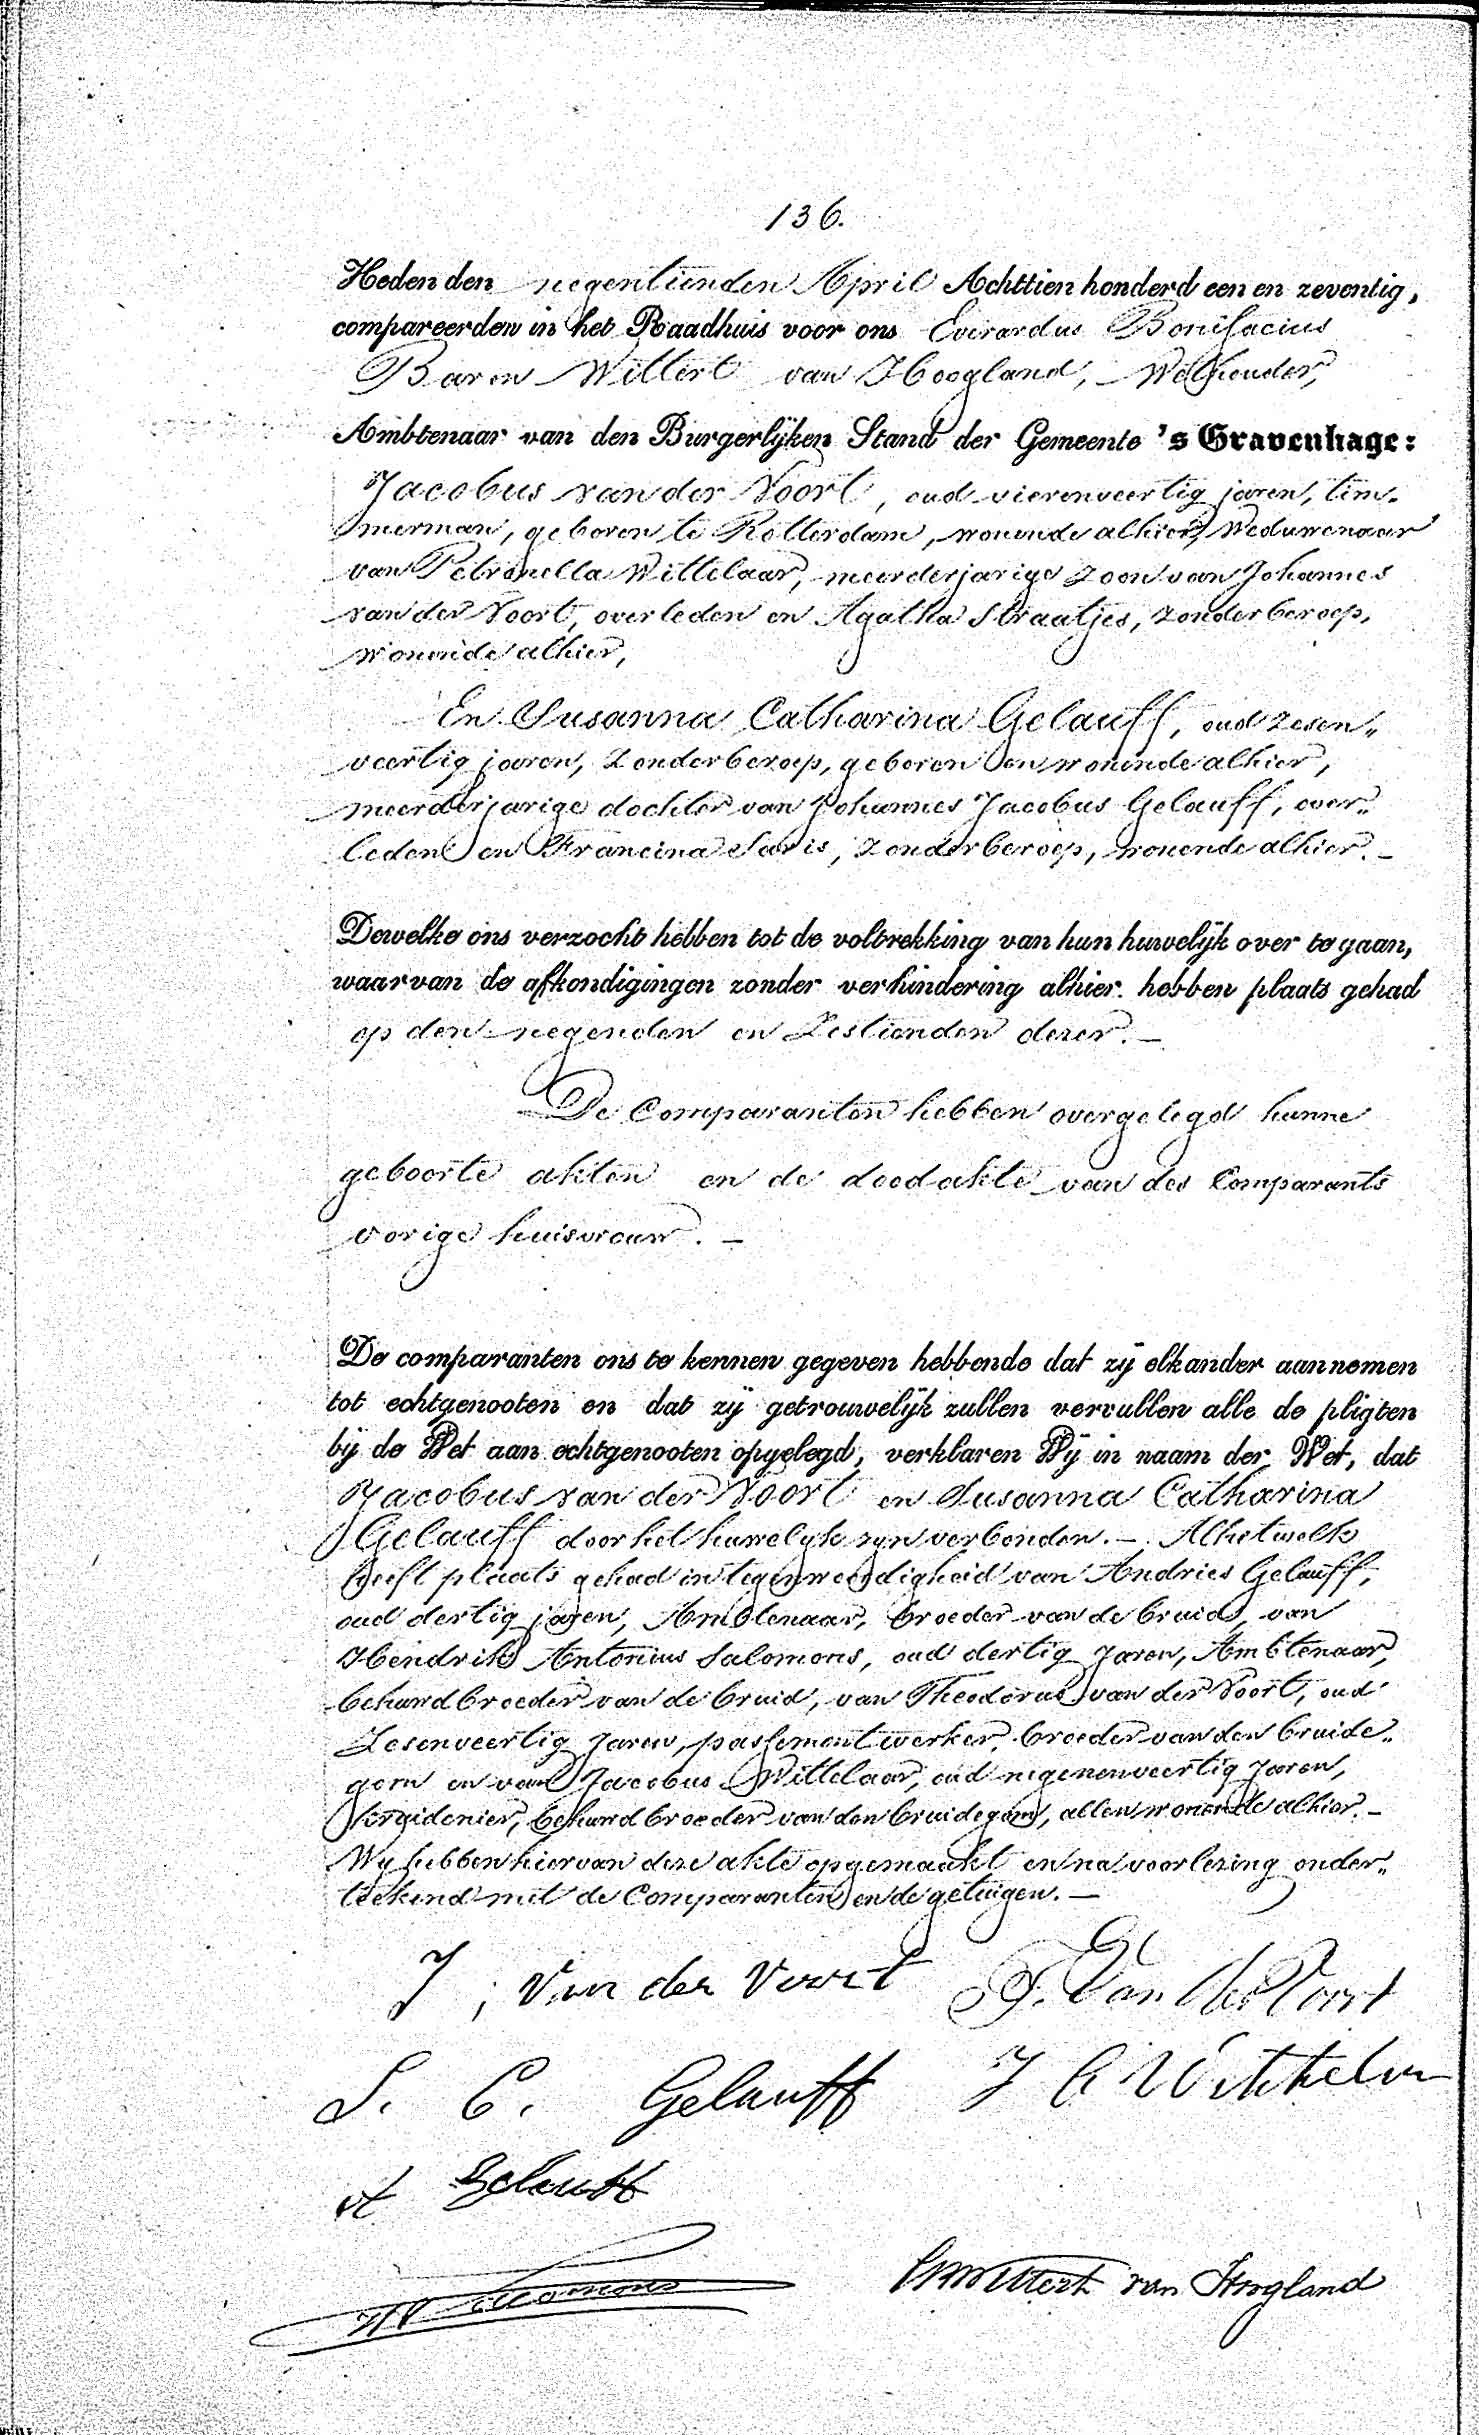 136.
Heden den negentienden April Achttien honderd een en zeventig,
compareerden in het Raadhuis voor ons Everardus Bonifacius
Baron Wittert van Hoogland, Wethouder,
Ambtenaar van den Burgerlijken Stand der Gemeente 's Gravenhage:
Jacobus van der Voort, oud vierenveertig jaren, tim-
merman, geboren te Rotterdam, wonende alhier, Weduwenaar
van Petronella Wittelaar, meerderjarige zoon van Johannes
van der Voort, overleden en Agatha Straatjes, zonder beroep,
wonende alhier,
En Susanna Catharina Gelauff, oud zesen„
veertig jaren, zonder beroep, geboren en wonende alhier,
meerderjarige dochter van Johannes Jacobus Gelauff, over„
leden en Francina Saris, zonder beroep, wonende alhier. —
Dewelke ons verzocht hebben tot de voltrekking van hun huwelijk over te gaan,
waarvan de afkondigingen zonder verhindering alhier hebben plaats gehad
op den negenden en Zestienden dezer. —
De Comparanten hebben overgelegd hunne
geboorte akten en de doodakte van des Comparants
vorige huisvrouw. —
De comparanten ons te kennen gegeven hebbende dat zij elkander aannemen
tot echtgenooten en dat zij getrouwelijk zullen vervullen alle de pligten
bij de Wet aan echtgenooten opgelegd, verklaren Wij in naam der Wet, dat
Jacobus van der Voort en Susanna Catharina
Gelauff door het huwelijk zijn verbonden. — Alhetwelk
heeft plaats gehad in tegenwoordigheid van Andries Gelauff,
oud dertig jaren, Ambtenaar, broeder van de bruid, van
Hendrik Antonius Salomons, oud dertig Jaren, Ambtenaar,
behuwdbroeder van de bruid, van Theodorus van der Voort, oud
Zesenveertig Jaren, passementwerker, broeder van den bruide„
gom en van Jacobus Wittelaar, oud negenenveertig Jaren,
kruidenier, behuwdbroeder van den bruidegom, allen wonende alhier. —
Wij hebben hiervan deze akte opgemaakt en na voorlezing onder„
teekend met de Comparanten en de getuigen. —
J, van der Voort T. Van der Voort
S. C. Gelauff J
A Gelauff
Wittert van Hoogland